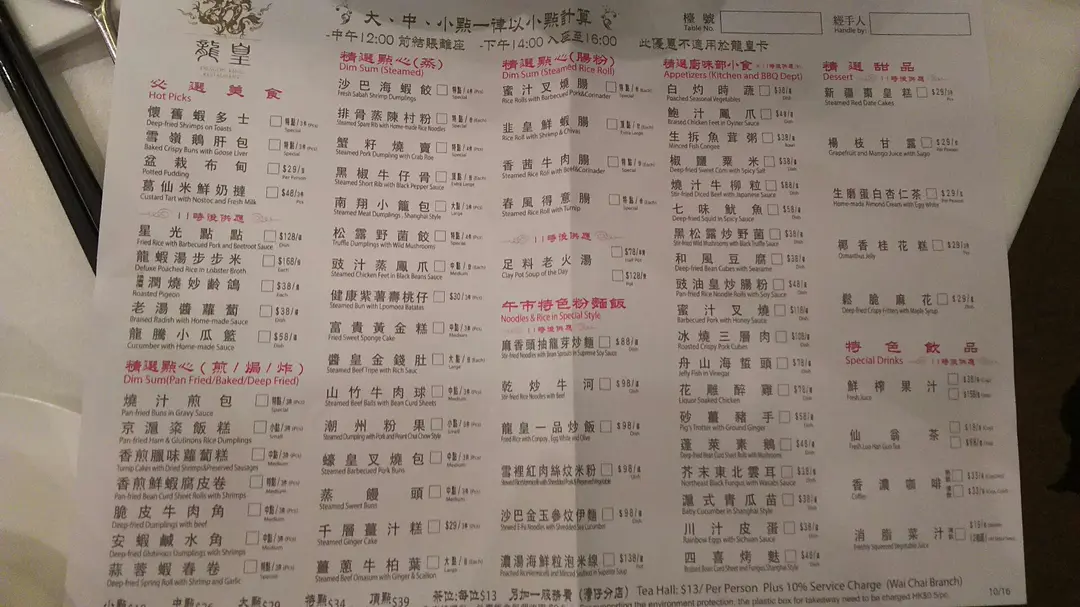 龍皇
大、中、小點一律以小點計算
-中午12:00 前結賬離座 -下午14:00 入座至16:00 此優惠不適用於龍皇卡
檯號
Table No.
經手人
Handle by:
必選美食
Hot Picks
懷舊蝦多士
Deep-fried Shrimps on Toasts
雪嶺鵝肝包
Baked Crispy Buns with Goose Liver
盆栽布甸 $29/份
Potted Pudding Per Person
葛仙米鮮奶撻 $48/3件
Custard Tart with Nostoc and Fresh Milk
11時後供應
星光點點 $128/碟
Fried Rice with Barbecued Pork and Beetroot Sauce Dish
龍蝦湯步步米 $168/
Deluxe Poached Rice in Lobster Broth Each
潤燒妙齡鴿 $38/隻
Roasted Pigeon Each
老湯醬蘿蔔 $38/
Braised Radish with Home-made Sauce Dish
龍騰小瓜籃 $58/
Cucumber with Home-made Sauce Dish
精選點心(煎/焗/炸)
Dim Sum(Pan Fried/Baked/Deep Fried)
燒汁煎包
Pan-fried Buns in Gravy Sauce Special
京滬粢飯糕
Pan-fried Ham & Glutinous Rice Dumplings Small
香煎臘味蘿蔔糕
Turnip Cakes with Dried Shrimps&Preserved Sausages Medium
香煎鮮蝦腐皮卷
Pan-fried Bean Curd Sheet Rolls with Shrimps Medium
脆皮牛肉角
Deep-fried Dumplings with beef Medium
安蝦鹹水角
Deep-fried Glutinous Dumplings with Shrimp Medium
蒜蓉蝦春卷
Deep-fried Spring Roll with Shrimp and Garlic
精選點心(蒸)
Dim Sum (Steamed)
沙巴海蝦餃
Fresh Sabah Shrimp Dumplings Special
排骨蒸陳村粉
Steamed Spare Rib with Home-made Rice Noodles Special
蟹籽燒賣
Steamed Pork Dumpling with Crab Roe Special
黑椒牛仔骨
Steamed Short Rib with Black Pepper Sauce Extra Large
南翔小籠包
Steamed Meat Dumplings, Shanghai Style Large
松露野菌餃
Truffle Dumplings with Wild Mushrooms Special
豉汁蒸鳳爪
Steamed Chicken Feet in Black Beans Sauce Medium
健康紫薯壽桃仔 $30/3件
富貴黃金糕
Fried Sweet Sponge Cake Medium
醬皇金錢肚
Steamed Beef Tripe with Rich Sauc Large
山竹牛肉球
Steamed Beef Balls with Bean Curd Sheets Medium
潮州粉果
Small
蠔皇叉燒包
Steamed Barbecued Pork Buns Medium
蒸饅頭
Steamed Sweet Buns Small
千層薑汁糕 $29/3件
Steamed Ginger Cake
薑蔥牛柏葉
Steamed Beef Omasum with Ginger & Scallion Large
精選點心(腸粉)
Dim Sum (Steamed Rice Roll)
蜜汁叉燒腸
Rice Rolls with Barbecued Pork&Corriander Special
韭皇鮮蝦腸
Rice Roll with Shrimp & Chives Extra Large
香茜牛肉腸
Steamed Rice Roll with Beef&Corriander Special
春風得意腸
Steamed Rice Roll with Turnip Special
11時後供應
足料老火湯 $78/
Clay Pot Soup of the Day $128/
午市特色粉麵飯
Noodles & Rice in Special Style
11時後供應
麻香頭抽龍芽炒麵 $88/碟
Stir-fried Noodles with Bean Sprouts in Supreme Soy Sauce Dish
乾炒牛河 $98/
Stir-fried Rice Noodles with Beef Dish
龍皇一品炒飯 $98/
Fried Rice with Conpoy, Egg White and Olive Dish
雪裡紅肉絲炆米粉 $98/
Dish
沙巴金玉參炆伊麵 $98/
Dish
濃湯海鮮粒泡米線 $138/
精選廚味部小食
Appetizers (Kitchen and BBQ Dept)
白灼時蔬 $38/
Poached Seasonal Vegetables Dish
鮑汁鳳爪 $48/
Braised Chicken Feet in Oyster Sauce Dish
生拆魚茸粥 $38/
Minced Fish Congee Bowl
椒鹽粟米 $38/
Deep-fried Sweet Corn with Spicy Salt Dish
燒汁牛柳粒 $88/
Stir-fried Diced Beef with Japanese Sauce Dish
七味魷魚 $58/
Deep-fried Squid in Spicy Sauce Dish
黑松露炒野菌 $38/
Stir-fried Wild Mushrooms with Black Truffle Sauce Dish
和風豆腐 $38/
Deep-fried Bean Cubes with Sesame Dish
豉油皇炒腸粉 $48/
Pan-fried Rice Noodle Rolls with Soy Sauce Dish
蜜汁叉燒 $118/
Barbecued Pork with Honey Sauce Dish
冰燒三層肉 $108/
Roasted Crispy Pork Cubes Dish
舟山海蜇頭 $78/
Jelly Fish in Vinegar Dish
花雕醉雞 $78/
Liquor Soaked Chicken Dish
砂薑豬手 $58/
Pig's Trotter with Ground Ginger Dish
蓬萊素鵝 $48/
Deep-fried Bean Curd Sheet Rolls with Mushrooms Dish
芥末東北雲耳 $58/
Northeast Black Fungus with Wasabi Sauce Dish
滬式青瓜苗 $38/
Baby Cucumber in Shanghai Style Dish
川汁皮蛋 $38/
Rainbow Eggs with Sichuan Sauce Dish
四喜烤麩 $48/
Braised Bean Curd Sheet and Fungus, Shanghai Style Dish
精選甜品
Dessert 11時後供應
新疆棗皇糕 $29/3件
Steamed Red Date Cakes
楊枝甘露 $29/
Grapefruit and Mango Juice with Sago Per Person
生磨蛋白杏仁茶 $29/
Home-made Almond Cream with Egg White Per Person
椰香桂花糕 $29/3件
Osmanthus Jelly
鬆脆麻花 $29/
Deep-fried Crispy Fritters with Maple Syrup Dish
特色飲品
Special Drinks 11時後供應
鮮榨果汁 $38/
Fresh Juice
仙翁茶 $18/
Fresh Luo Han Guo Tea $98/
香濃咖啡 $35/
Coffee $33/
消脂菜汁 $18/
Freshly Squeezed Vegetables Juice
小點$18 中點$26 大點$29 特點$34 頂點$39 茶位:每位$13 另加一服務費 (灣仔分店) Tea Hall: $13/ Per Person Plus 10% Service Charge (Wai Chai Branch)
supporting the environment protection, the plastic box for takeaway need to be charged HK$0.5/pc.
10/16